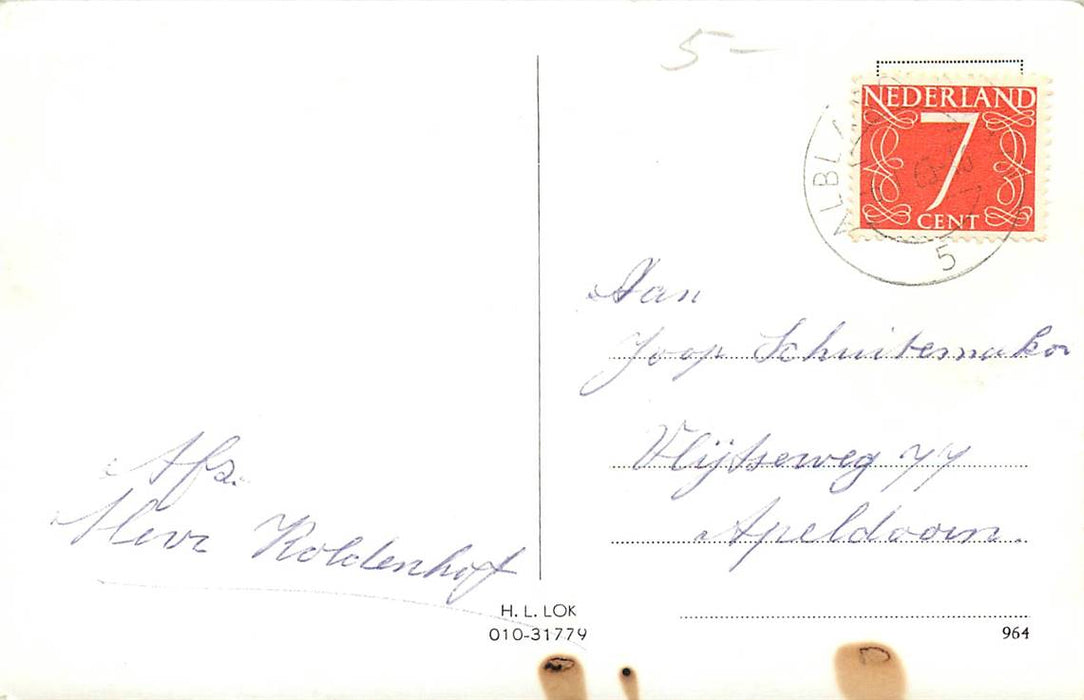 5-
NEDERLAND
7
CENT
ALBL
5
Aan
Joop Schuitemaker
Vlijtseweg 77
Apeldoorn.
Afz.
Koldenhof
H. L. LOK
010-31779
964